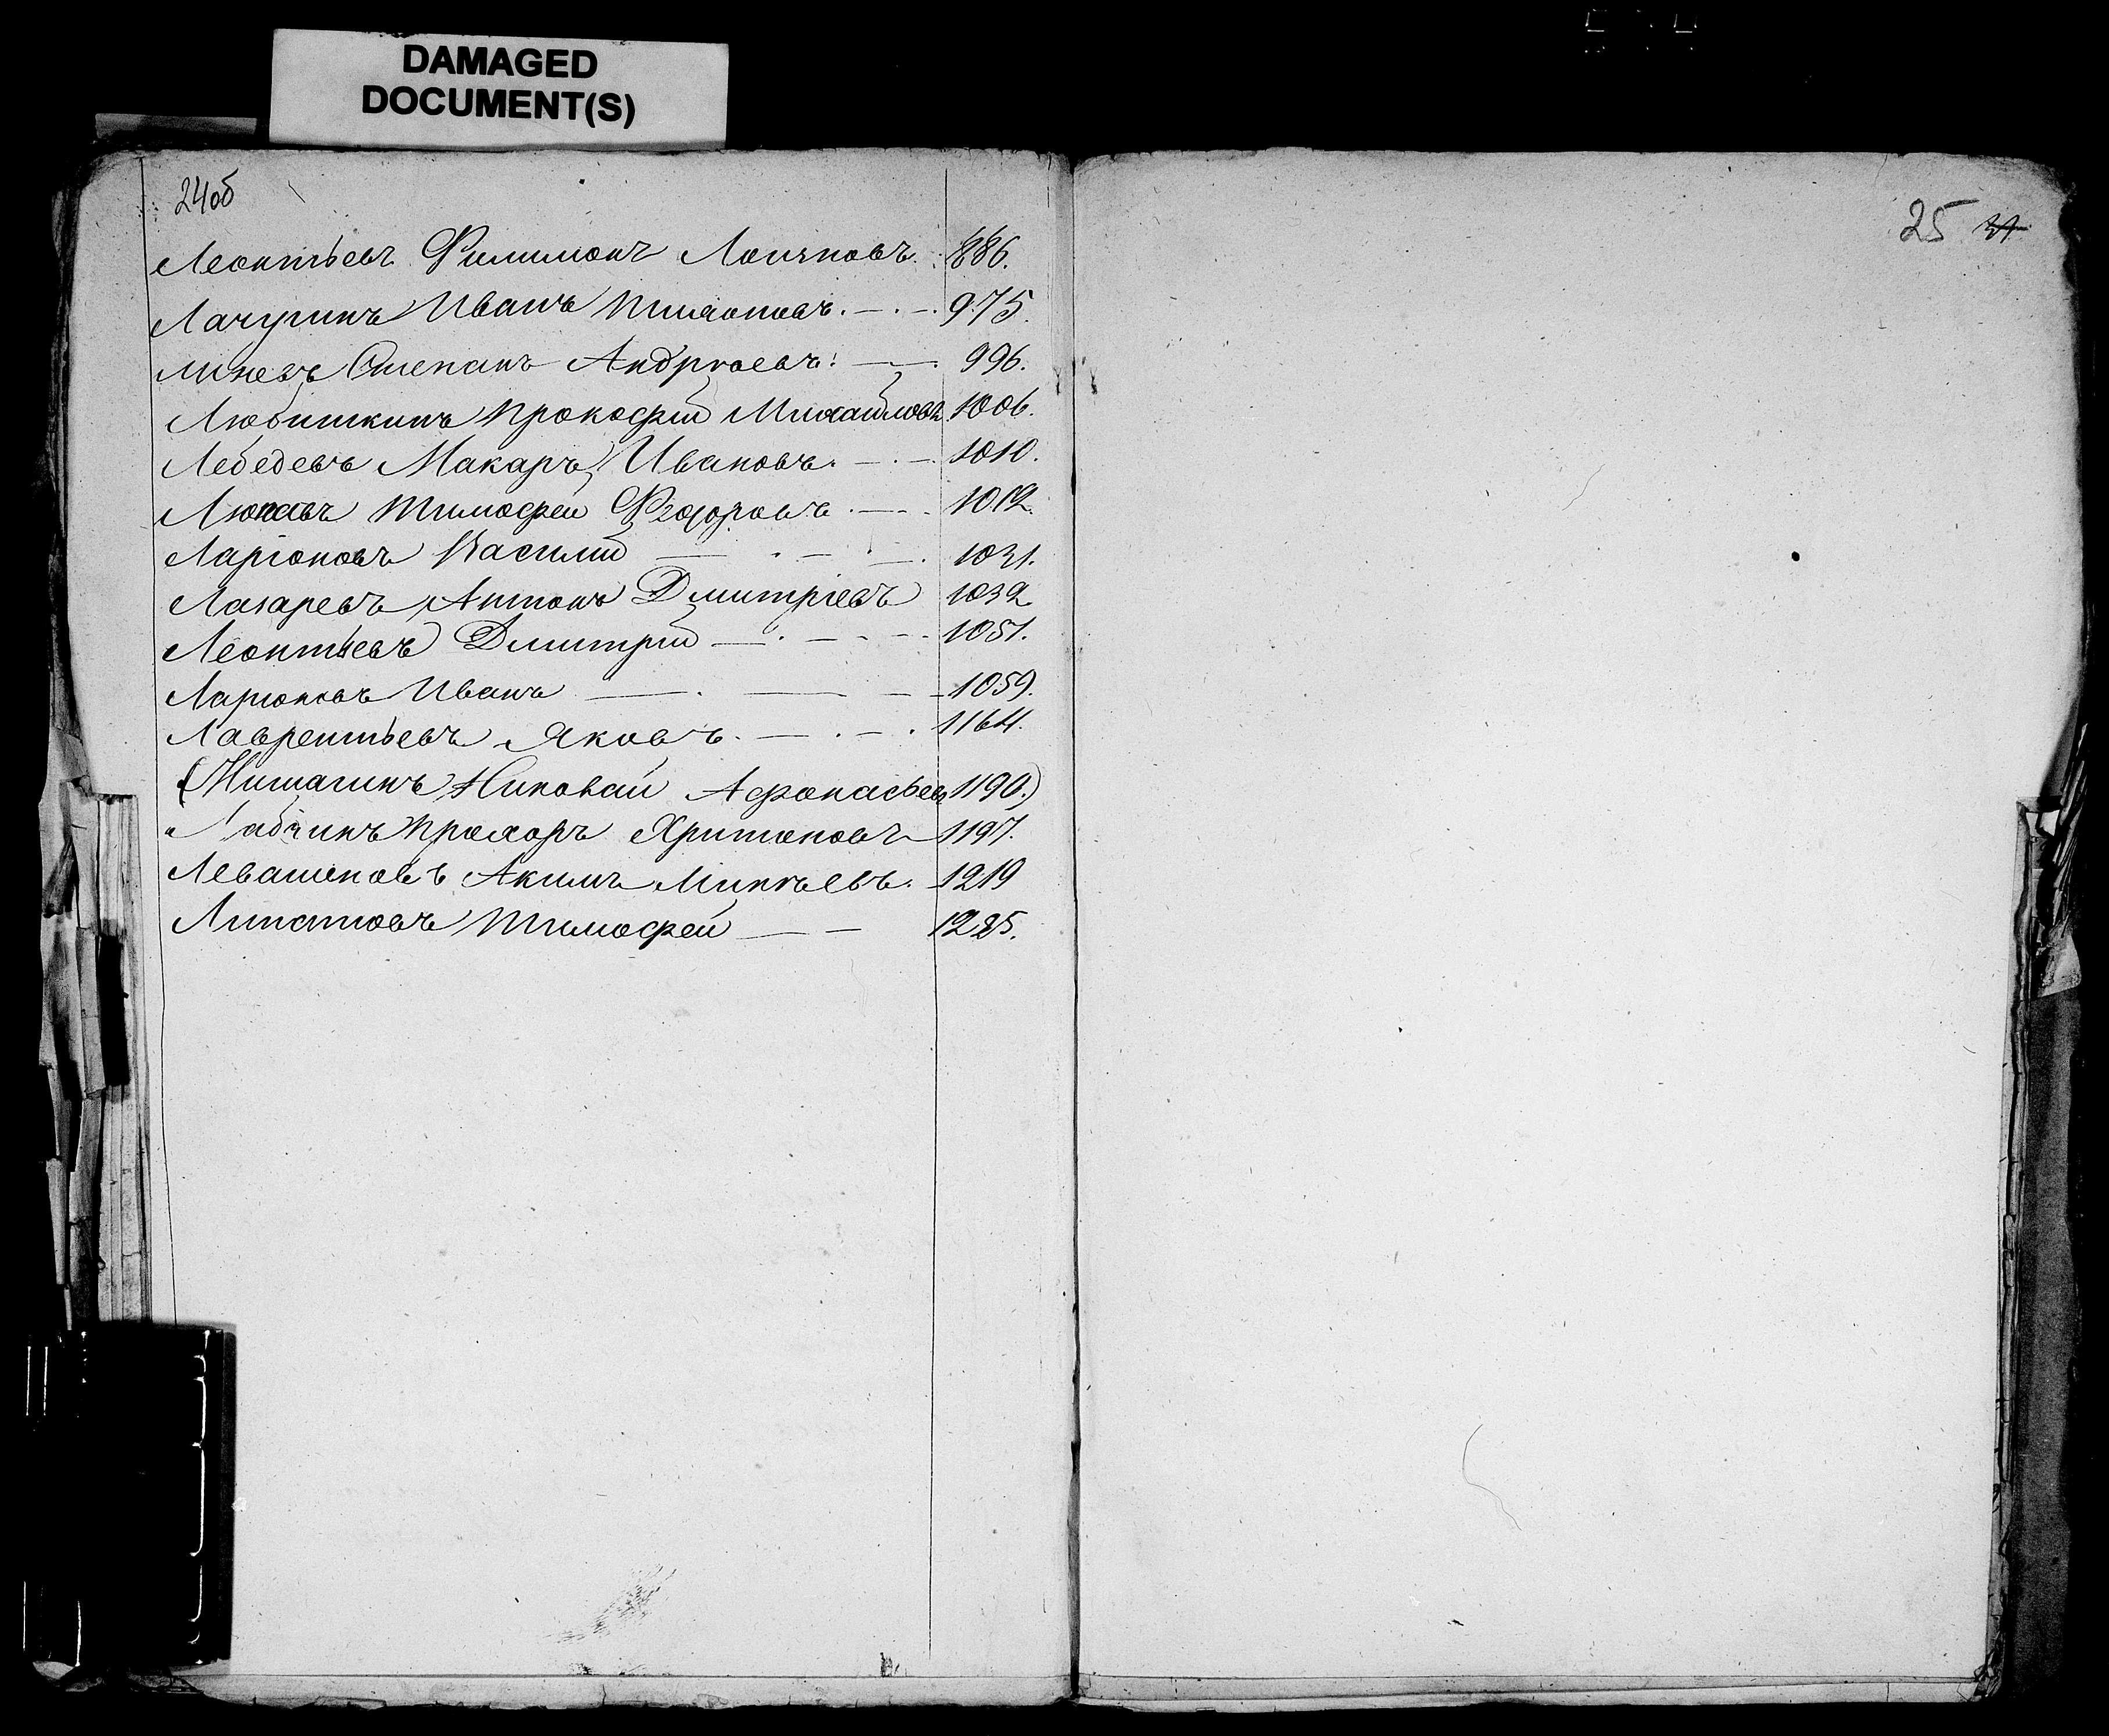 DAMAGED
DOCUMENT(S)
24об
25
Леонтьевъ Филимонъ Логиновъ. 886.
Лачугинъ Иванъ 975.
Линевъ Степанъ Андреевъ. 996.
Любишкинъ Прокофій Михайловъ 1006.
Лебедевъ Макаръ Ивановъ. 1010.
Тимофей Федоровъ 1012.
Ларіоновъ Василій 1031.
Лазаревъ Антонъ Дмитріевъ 1032
Леонтьевъ Дмитрій 1051.
Ларіоновъ Иванъ 1059.
Лаврентьевъ Яковъ. 1164.
Николай Афонасьевъ 1190.)
Лабзинъ Прохоръ Харитоновъ 1197.
Левашеновъ Акимъ 1219
Липатовъ Тимофей 1225.